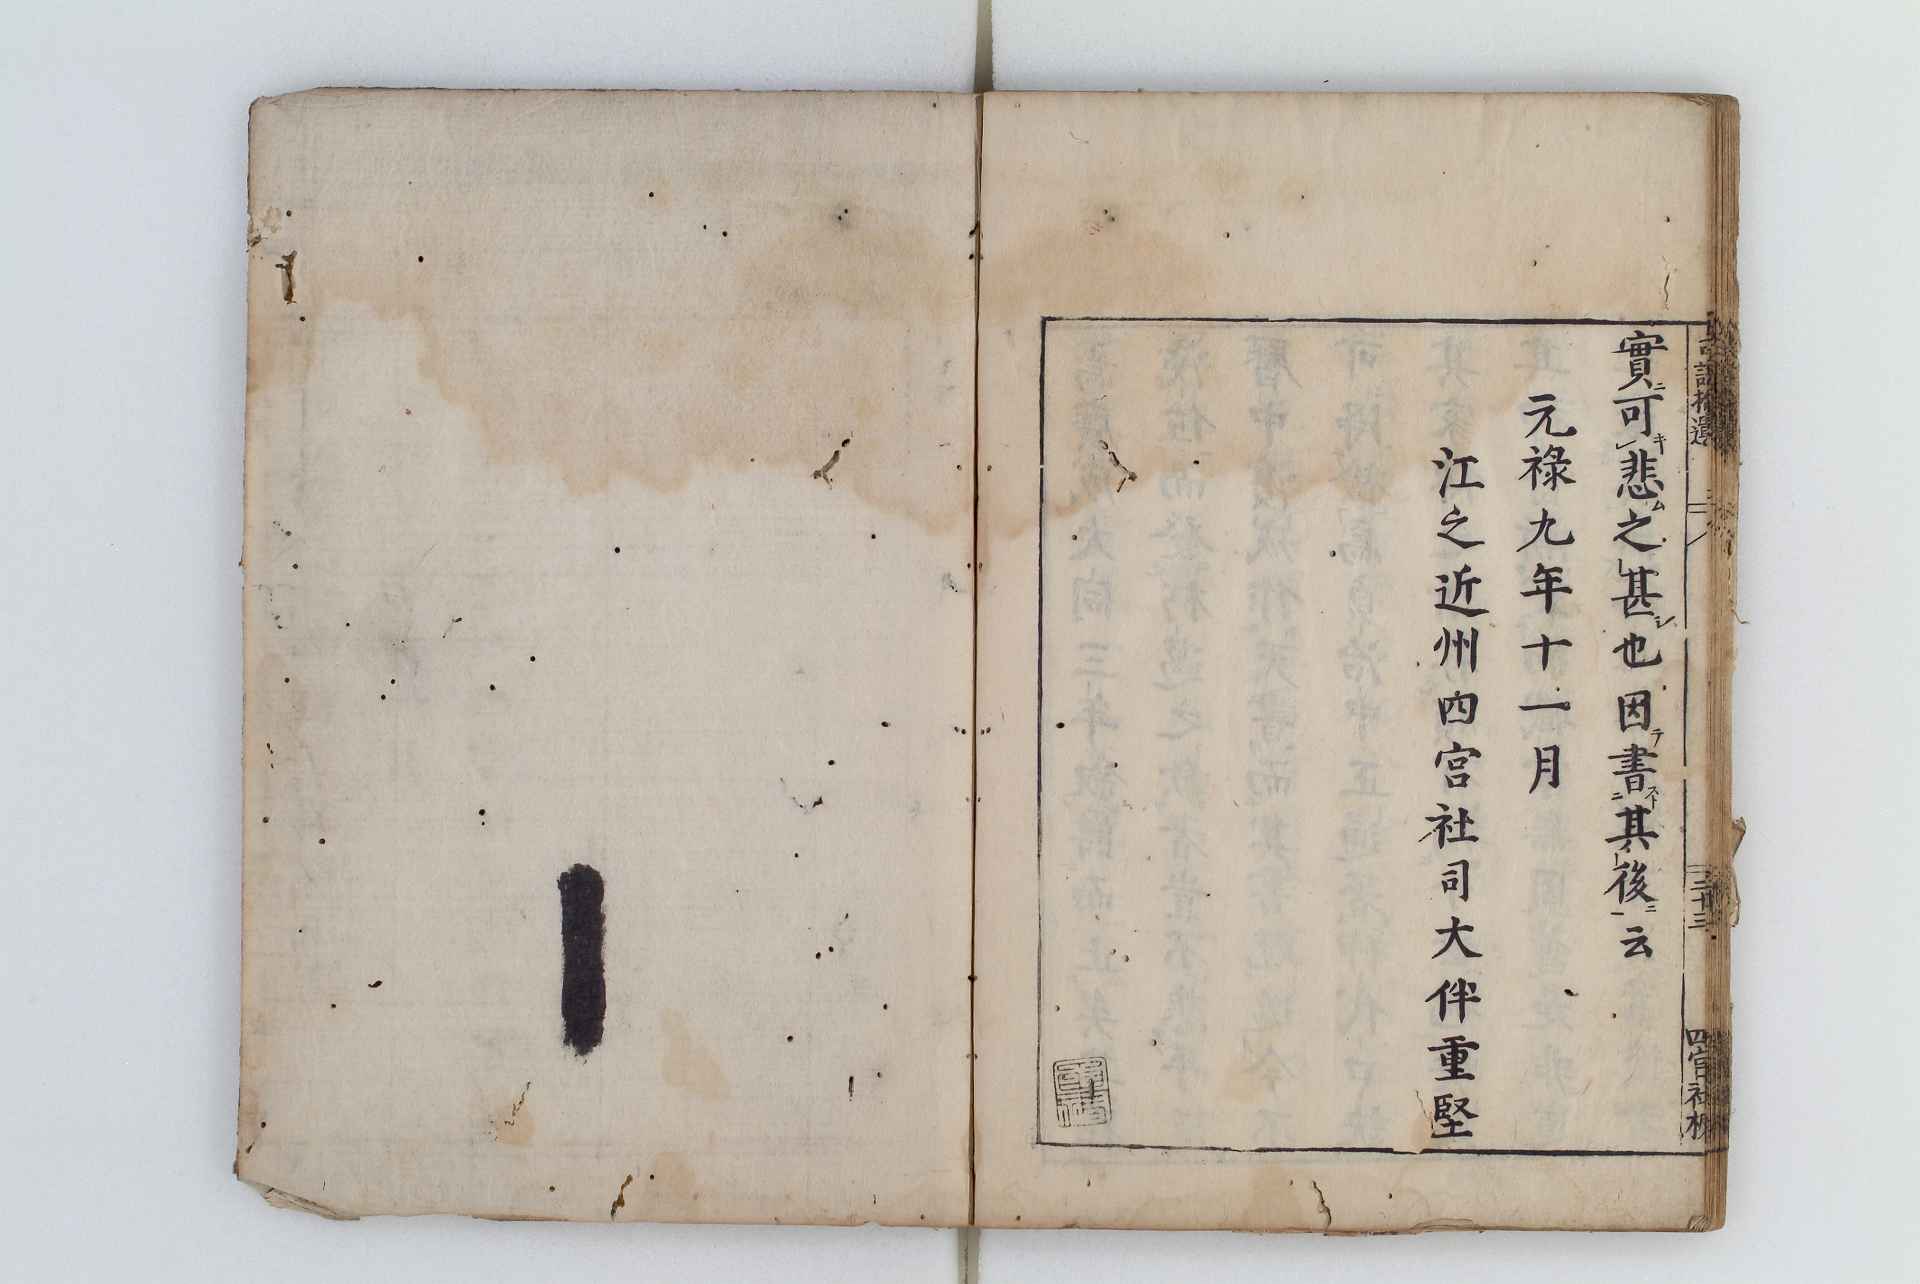 實ニ可キレ悲ム之レ甚シ也因テ書スト二其ノ後ニ一云
元祿九年十一月
江之近州四宮社司大伴重堅
語拾遺
三十三
四宮社板